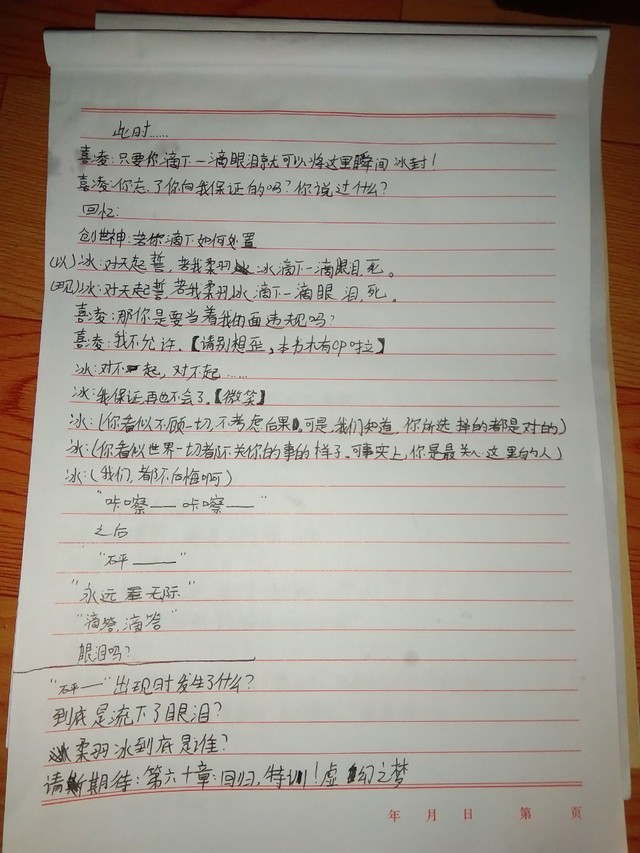 此时……
喜凌:只要你滴下一滴眼泪就可以将这里瞬间冰封!
喜凌:你忘了你向我保证的吗?你说过什么?
回忆:
创世神:若你滴下如何处置
(以)冰:对天起誓,若我柔羽冰滴下一滴眼泪,死。
(现)冰:对天起誓,若我柔羽冰滴下一滴眼泪,死。
喜凌:那你是要当着我的面违规吗?
喜凌:我不允许.【请别想歪,本书木有cp啦】
冰:对不起,对不起……
冰:我保证再也不会了.【微笑】
冰:(你看似不顾一切,不考虑后果.可是,我们知道,你所选择的都是对的)
冰:(你看似世界一切都不关你的事的样子.可事实上,你是最关心这里的人)
冰:(我们,都不后悔啊)
"咔嚓——咔嚓——"
之后
"砰——"
"永远无际"
"滴答,滴答"
眼泪吗?
"砰—"出现时发生了什么?
到底是流下了眼泪?
柔羽冰到底是谁?
请期待:第六十章:回归,特训!虚幻之梦
年 月 日 第 页